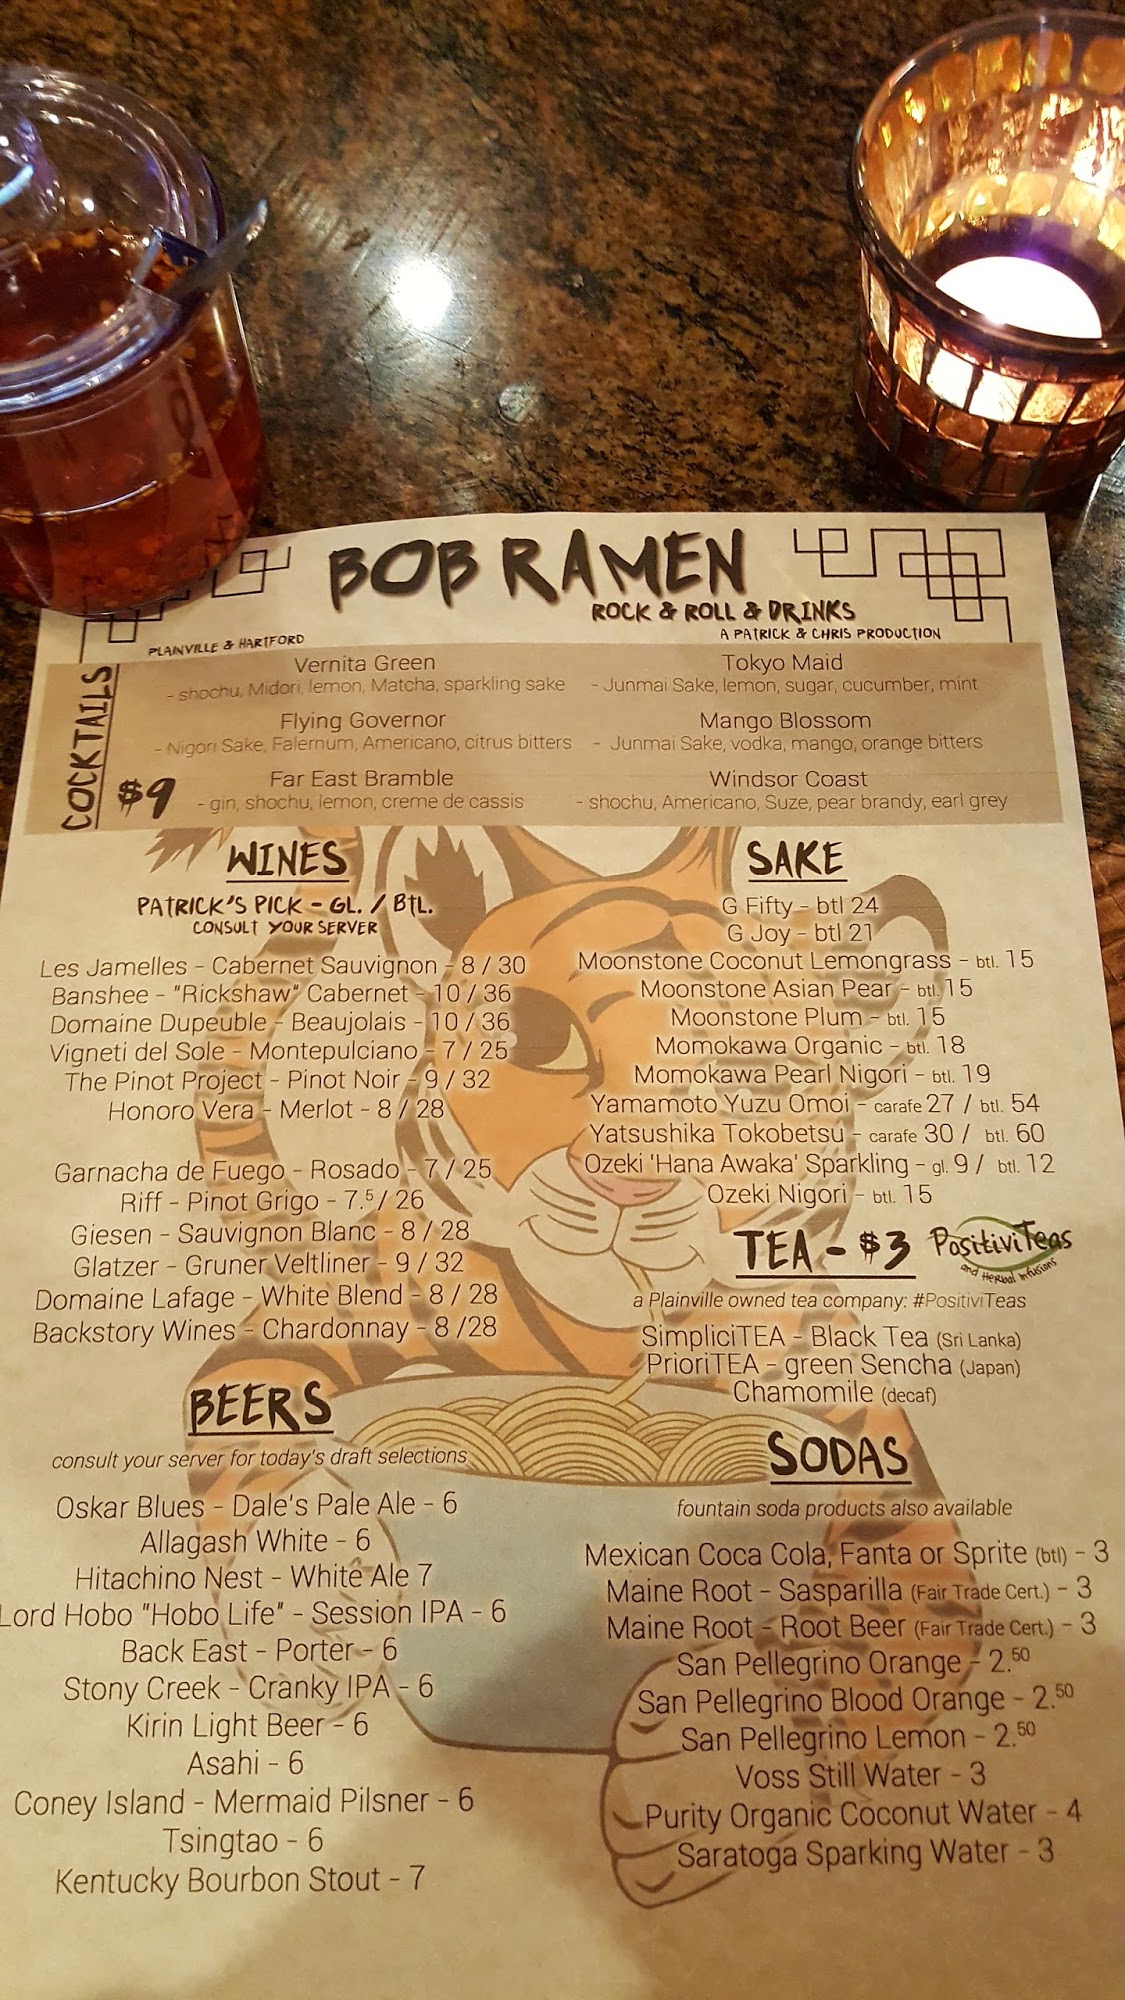 BOB RAMEN
ROCK & ROLL & DRINKS
A PATRICK & CHRIS PRODUCTION
PLAINVILLE & HARTFORD
COCKTAILS
$9
Vernita Green
- shochu, Midori, lemon, Matcha, sparkling sake
Flying Governor
- Nigori Sake, Falernum, Americano, citrus bitters
Far East Bramble
- gin, shochu, lemon, creme de cassis
Tokyo Maid
- Junmai Sake, lemon, sugar, cucumber, mint
Mango Blossom
- Junmai Sake, vodka, mango, orange bitters
Windsor Coast
- shochu, Americano, Suze, pear brandy, earl grey
WINES
PATRICK'S PICK - GL. / BTL.
CONSULT YOUR SERVER
Les Jamelles - Cabernet Sauvignon - 8 / 30
Banshee - "Rickshaw" Cabernet - 10 / 36
Domaine Dupeuble - Beaujolais - 10 / 36
Vigneti del Sole - Montepulciano - 7 / 25
The Pinot Project - Pinot Noir - 9 / 32
Honoro Vera - Merlot - 8 / 28
Garnacha de Fuego - Rosado - 7 / 25
Riff - Pinot Grigo - 7.5 / 26
Giesen - Sauvignon Blanc - 8 / 28
Glatzer - Gruner Veltliner - 9 / 32
Domaine Lafage - White Blend - 8 / 28
Backstory Wines - Chardonnay - 8 /28
BEERS
consult your server for today's draft selections
Oskar Blues - Dale's Pale Ale - 6
Allagash White - 6
Hitachino Nest - White Ale 7
Lord Hobo "Hobo Life" - Session IPA - 6
Back East - Porter - 6
Stony Creek - Cranky IPA - 6
Kirin Light Beer - 6
Asahi - 6
Coney Island - Mermaid Pilsner - 6
Tsingtao - 6
Kentucky Bourbon Stout - 7
SAKE
G Fifty - btl 24
G Joy - btl 21
Moonstone Coconut Lemongrass - btl. 15
Moonstone Asian Pear - btl. 15
Moonstone Plum - btl. 15
Momokawa Organic - btl. 18
Momokawa Pearl Nigori - btl. 19
Yamamoto Yuzu Omoi - carafe 27 / btl. 54
Yatsushika Tokobetsu - carafe 30 / btl. 60
Ozeki 'Hana Awaka' Sparkling - gl. 9 / btl. 12
Ozeki Nigori - btl. 15
TEA - $3
PositiviTeas
and Herbal Infusions
a Plainville owned tea company: #PositiviTeas
SimpliciTEA - Black Tea (Sri Lanka)
PrioriTEA - green Sencha (Japan)
Chamomile (decaf)
SODAS
fountain soda products also available
Mexican Coca Cola, Fanta or Sprite (btl) - 3
Maine Root - Sasparilla (Fair Trade Cert.) - 3
Maine Root - Root Beer (Fair Trade Cert.) - 3
San Pellegrino Orange - 2.50
San Pellegrino Blood Orange - 2.50
San Pellegrino Lemon - 2.50
Voss Still Water - 3
Purity Organic Coconut Water - 4
Saratoga Sparking Water - 3